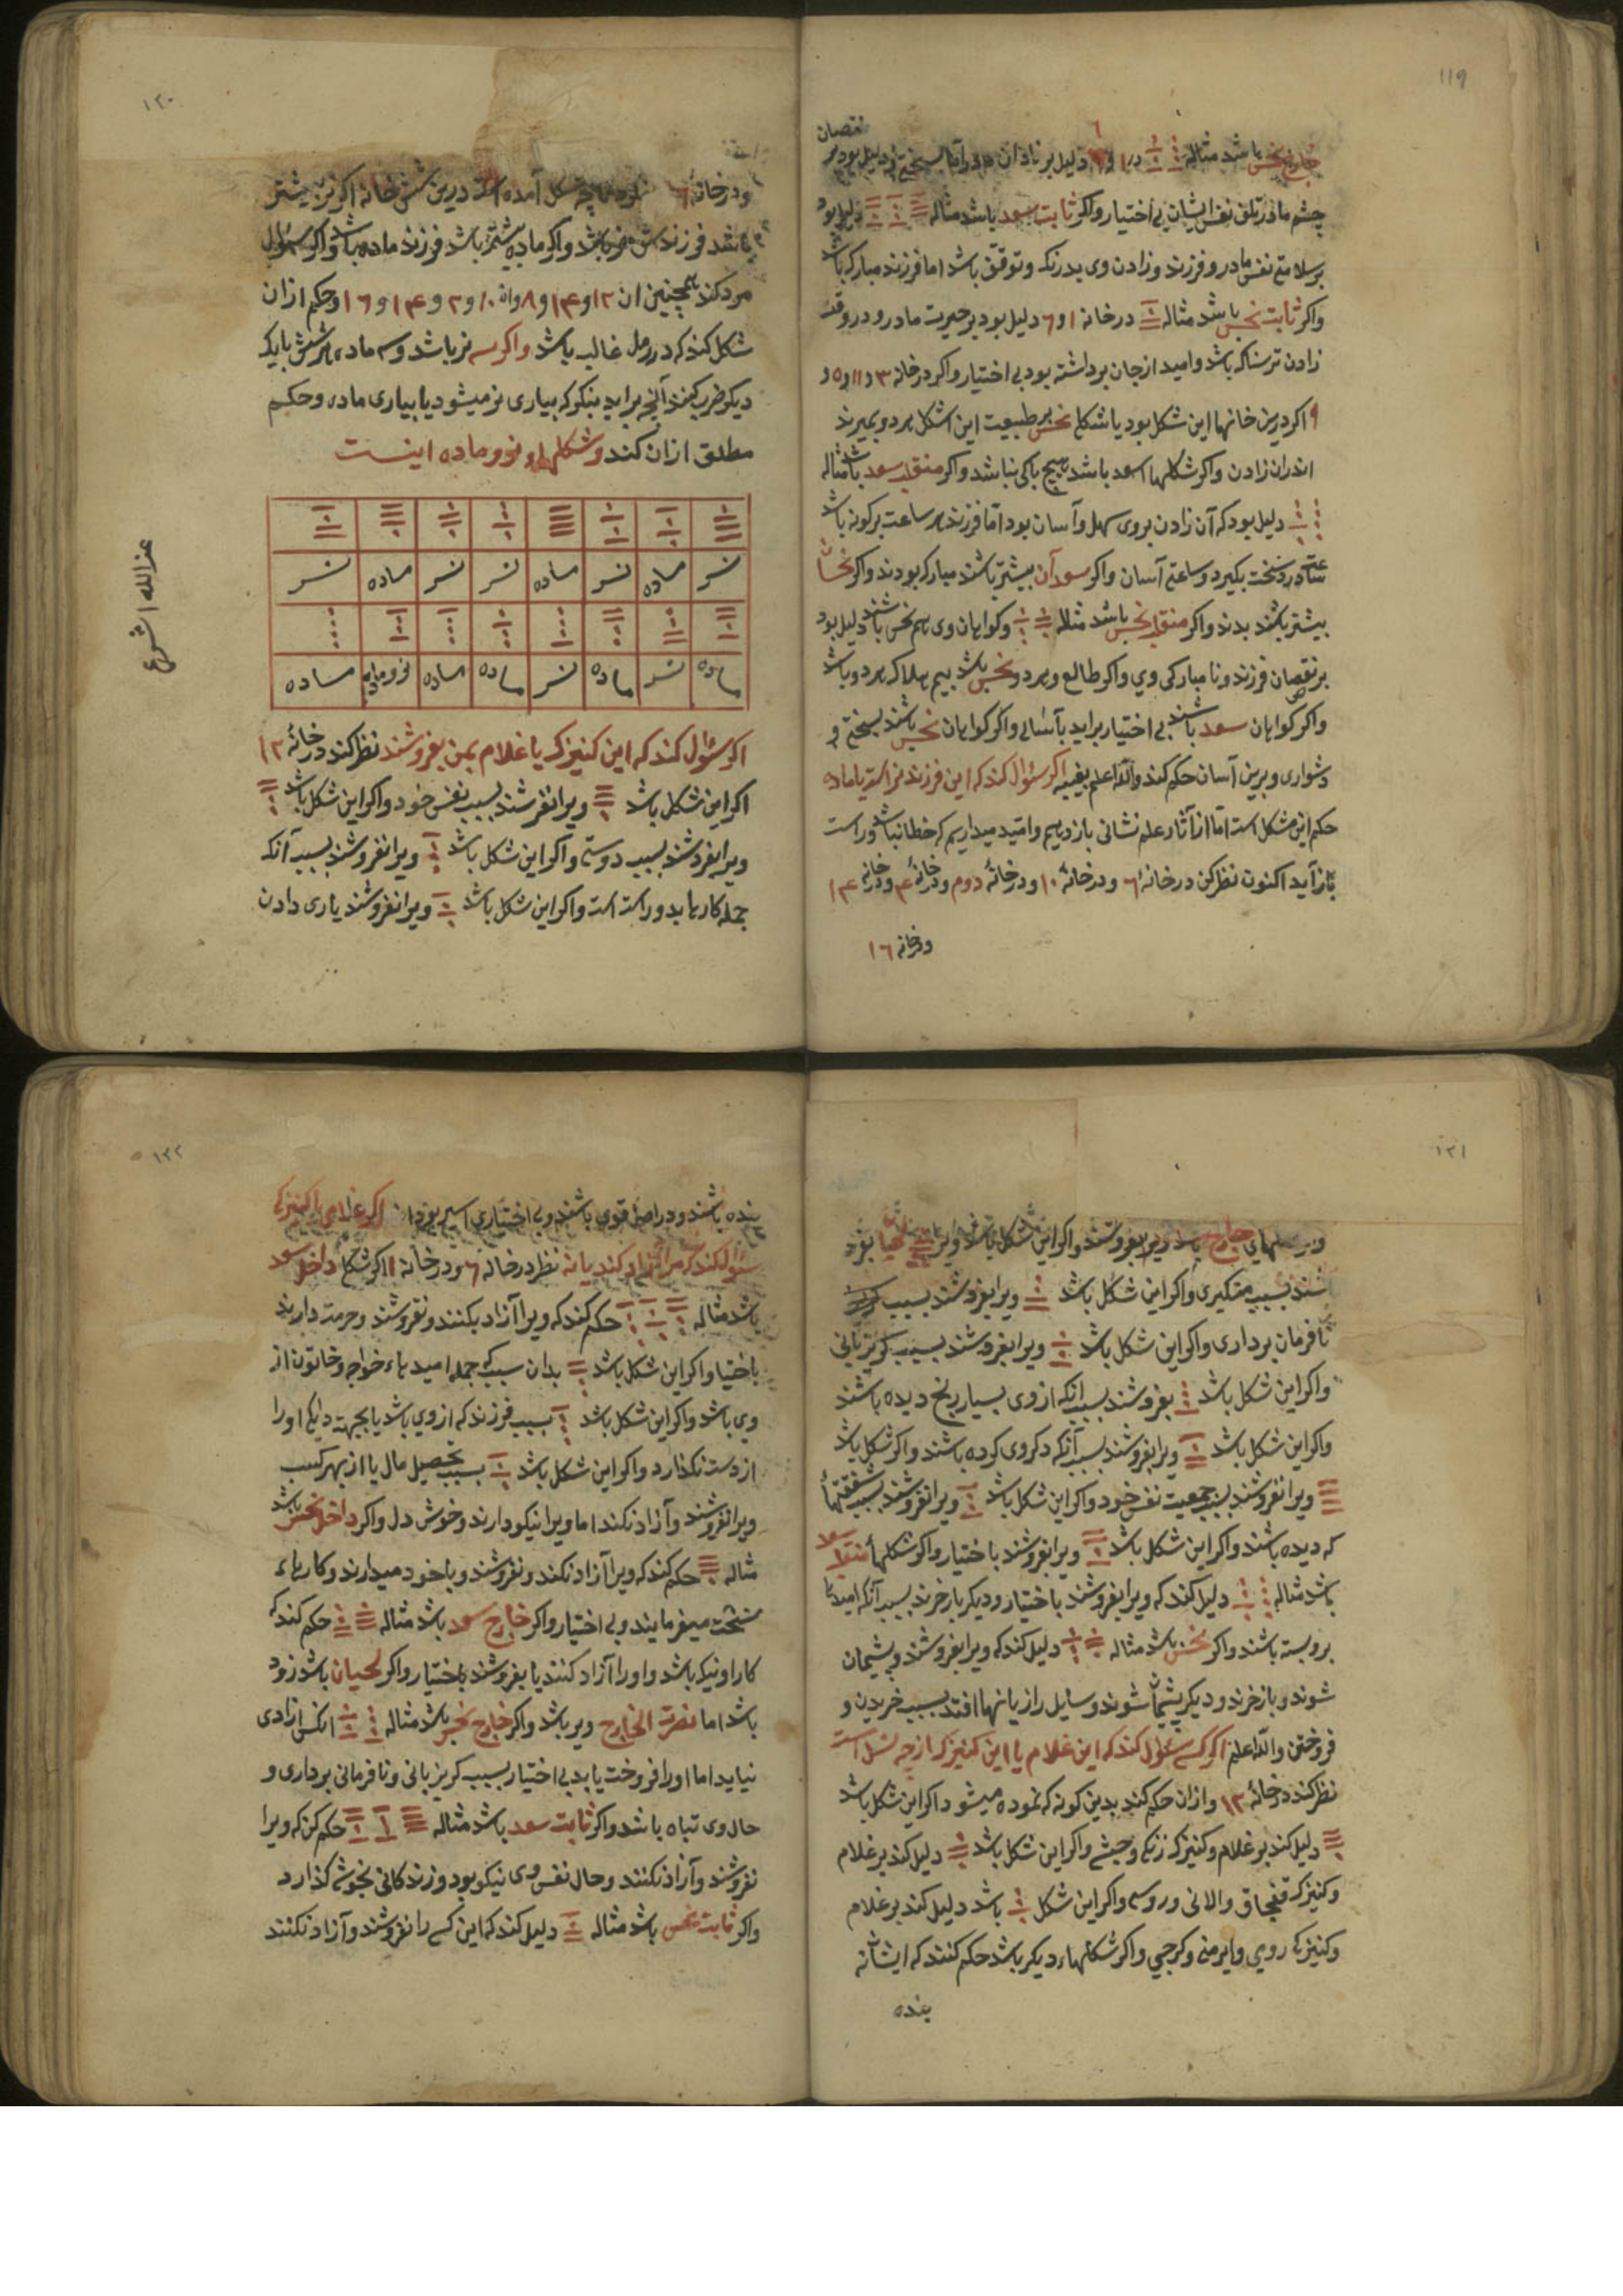 ۱۱۹
نقصان
خارج نحس باشد مثاله در ۱ و ۶ دلیل بر زادن بسختی و دلیل بود بر
چشم مادر تلف نفس ایشان بی اختیار واکر ثابت سعد باشد مثاله دلیل بود
بر سلامتی نفس مادر و فرزند و زادن وی بدرنک و توقف باشد اما فرزند مبارک باشد
واکر ثابت نحس باشد مثاله در خانه ۱ و ۶ دلیل بود بر حیرت مادر و در وقت
زادن ترسناک باشد وامید از جان برداشته بود بی اختیار واکر در خانه ۳ و ۱۱ و ۵ و
۹ اکر درین خانها این شکل بود یا شکلی نحس بر طبیعت این اشکل هر دو بمیرند
اندران زادن واکر شکلها اسعد باشد هیچ باکی نباشد واکر منقلب سعد باشد مثاله
دلیل بود که آن زادن بروی سهل و آسان بود اما فرزند هر ساعت برکونه باشد
ساعتی درد سخت بکیرد و ساعتی آسان واکر سعد آن بیشتر باشند مبارک بودند واکر نحسان
بیشتر باشند بدند واکر منقلب نحس باشد مثاله وکواهان وی هم نحس باشند دلیل بود
بر نقصان فرزند و نا مبارکی وی واکر طالع و هر دو نحس باشد بیم هلاک هر دو باشد
واکر کواهان سعد باشند بی اختیار براید بآسانی واکر کواهان نحس باشند بسختی و
دشواری وبرین آسان حکم کند والله اعلم بغیبه اکر سؤال کند که این فرزند نر است یا ماده
حکم این مشکل است اما از آثار علم نشانی باز دهیم وامید میداریم که خطا نباشد وراست
بازآید اکنون نظر کن در خانهٔ ۶ ودر خانهٔ ۱۰ ودر خانهٔ دوم ودر خانهٔ ۴ ودر خانه ۱۴
ودر خانه ۱۶
۱۲۰
ودر خانه ۱۶ چه شکل آمده است درین شش خانه اکر نر بیشتر
باشد فرزندش نر باشد واکر ماده بیشتر باشد فرزند ماده باشد واکر سؤال
مرد کند همچنین از ۱۲ و ۱۴ و ۸ و از ۱۰ و ۲ و ۱۴ و ۱۶ وحکم از ان
شکل کند که در رمل غالب باشد واکر سه نر باشد وسه ماده هر شش بایک
دیکر ضرب کند آنچه براید بنکر که بیاری نر میشود یا بیاری ماده وحکم
مطلق از ان کند وشکلهاء نر و ماده اینست
نر ماده نر ماده نر نر ماده نر
ماده نر ماده نر ماده ماده نروماده ماده
اکر سؤال کند که این کنیزک یا غلام بمن بفروشند نظر کند در خانهٔ ۱۲
اکر این شکل باشد ویرا نفروشند بسبب نفس خود واکر این شکل باشد
ویرا نفروشند بسبب دوستی واکر این شکل باشد ویرا نفروشند بسبب آنکه
جمله کارها بدو راست است واکر این شکل باشد ویرا نفروشند یاری دادن
عند الله اشرع
۱۲۱
خارج ویرا بفروشند واکر این شکل باشد ویرا
شند بسبب متکبری واکر این شکل باشد ویرا بفروشند بسبب
نافرمان برداری واکر این شکل باشد ویرا بفروشند بسبب کریزپائی
واکر این شکل باشد بفروشند بسبب آنکه از وی بسیار رنج دیده باشند
واکر این شکل باشد ویرا بفروشند بسبب آنکه دکروی کرده باشند واکر شکل باشد
ویرا نفروشند بسبب جمعیت نفس خود واکر این شکل باشد ویرا نفروشند بسبب شفقتها
که دیده باشند واکر این شکل باشد ویرا نفروشند باختیار واکر شکلها منقلب سعد
باشد مثاله دلیل کند که ویرا بفروشند باختیار ودیکر باز خرند بسبب آنکه امیدها
بروبسته باشند واکر نحس باشد مثاله دلیل کند که ویرا بفروشند وپشیمان
شوند وباز خرند ودیکر پشیمان شوند وسایل را زیانها افتد بسبب خریدن و
فروختن والله اعلم اکر کسی سؤال کند که این غلام یا این کنیزک از چه نسل است
نظر کند در خانهٔ ۱۲ واز ان حکم کند بدین کونه که نموده میشود اکر این شکل باشد
دلیل کند بر غلام وکنیزک زنکی وحبشی واکر این شکل باشد دلیل کند بر غلام
وکنیزک قفجاق والانی وروسی واکر این شکل باشد دلیل کند بر غلام
وکنیزک رومی وایرمنی وکرجی واکر شکلهاء دیکر باشد حکم کنند که ایشان نه
بنده
۱۲۲
بنده باشند ودر اصل قوی باشند وبی اختیاری اسیر بود اند اکر غلامی یا کنیزکی
سؤال کند که مرا آزاد کند یا نه نظر در خانه ۶ ودر خانه ۱۱ اکر شکل داخل سعد
باشد مثاله حکم کند که ویرا آزاد بکنند ونفروشند وحرمت دارند
باختیار واکر این شکل باشد بدان سبب که جمله امیدهاء خواجه وخاتون از
وی باشد واکر این شکل باشد بسبب فرزند که از وی باشد یا بجهت دایکی او را
از دست نکذارد واکر این شکل باشد بسبب تحصیل مال یا از بهر کسب
ویرا نفروشند وآزاد نکنند اما ویرا نیکو دارند وخوش دل واکر داخل نحس باشد
مثاله حکم کند که ویرا آزاد نکند ونفروشند وباخود میدارند وکارهاء
سخت میفرمایند وبی اختیار واکر خارج سعد باشد مثاله حکم کند که
کار او نیک باشد واورا آزاد کنند یا بفروشند باختیار واکر لحیان باشد زود
باشد اما نصرت الخارج ویر باشد واکر خارج نحس باشد مثاله انکس ازادی
نیاید اما اورا فروخت یابد بی اختیار بسبب کریزپائی ونافرمانی برداری و
حال وی تباه باشد واکر ثابت سعد باشد مثاله حکم کن که ویرا
نفروشند وآزاد نکنند وحال نفس وی نیکو بود وزندکانی بخوشی کذارد
واکر ثابت نحس باشد مثاله دلیل کند که این کس را نفروشند وآزاد نکنند